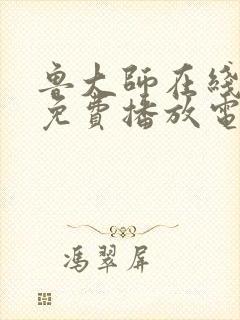 鲁大師在綫
免費播放電
馮翠屏